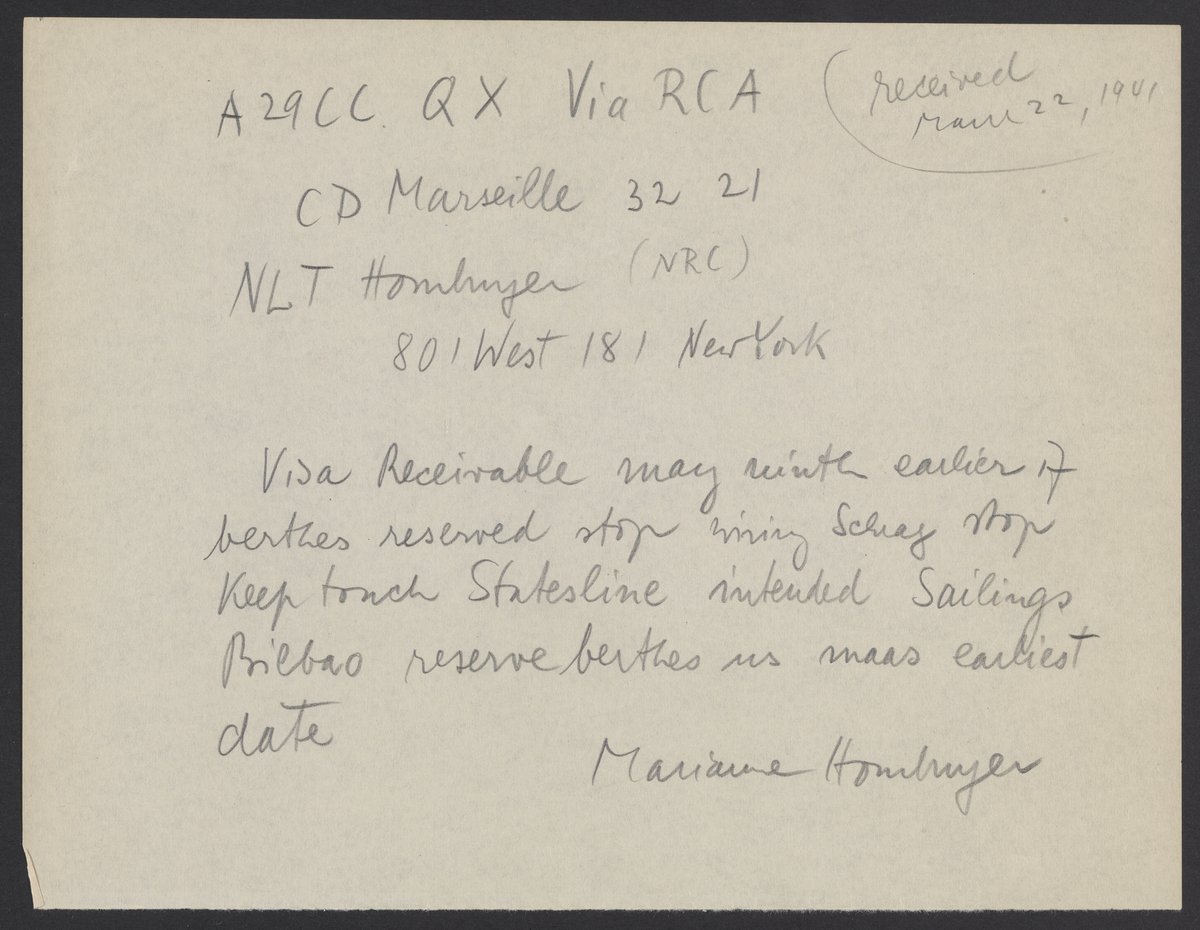 A29CC QX Via RCA
(received
22, 1941
CD Marseille 32 21
NLT Homburger (NRC)
801 West 181 New York
Visa Receivable may ninth earlier if
berthes reserved stop wiring Schag stop
Keep touch Statesline intended Sailings
Bilbao reserve berthes us maas earliest
date
Marianne Homburger